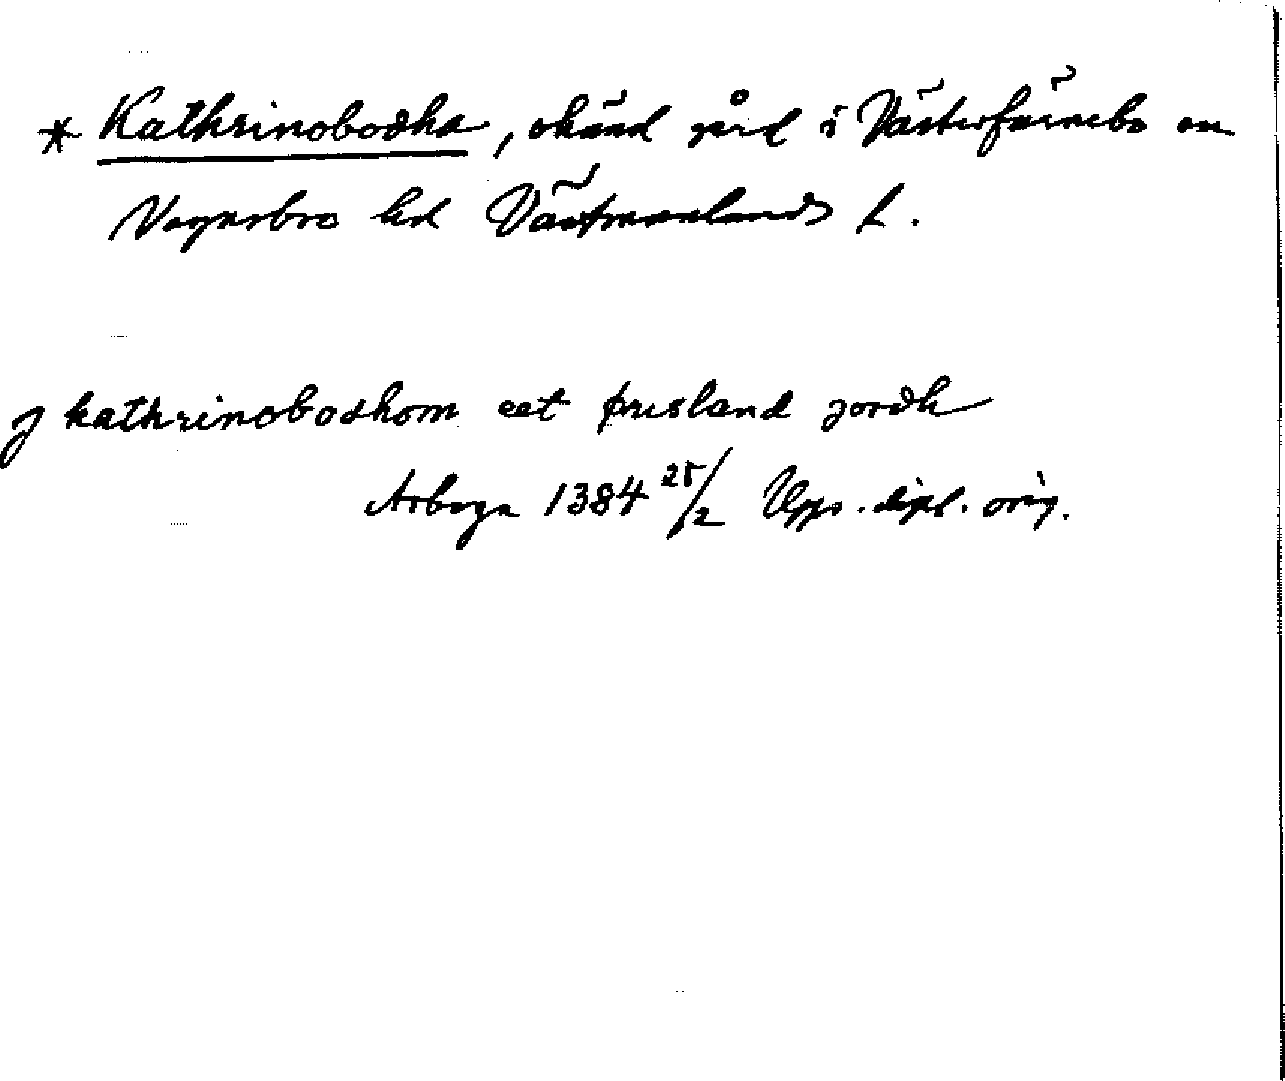 * Kathrinobodha, okänd gård i Västerfärnebo sn
Vagnsbro hd Västmanlands L.
J kathrinobodhom eet þrisland jordh
Arboga 1384 25/2 Upps. dipl. orig.